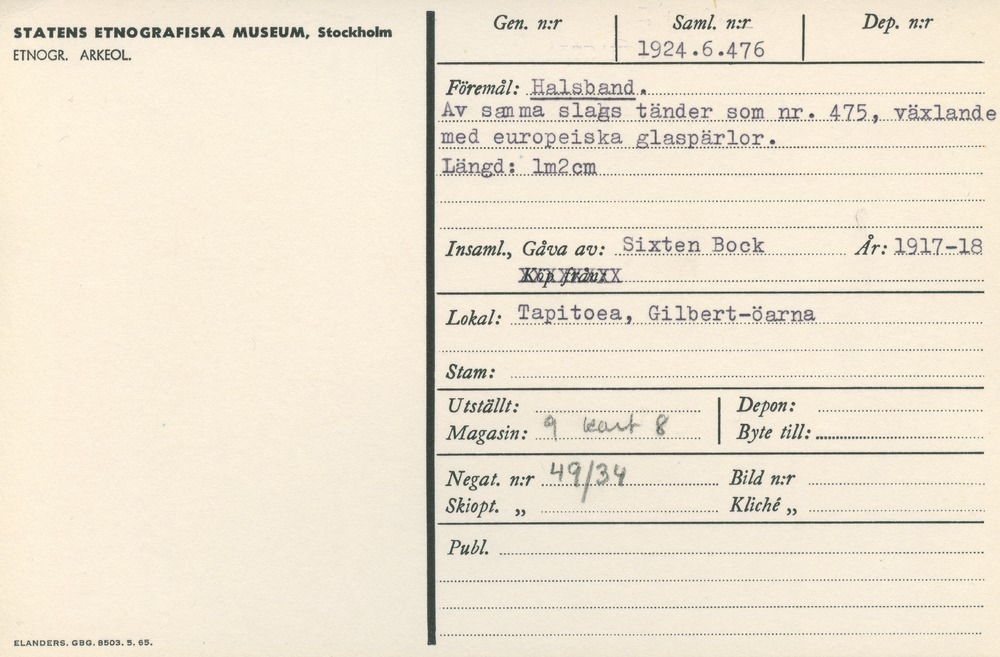 STATENS ETNOGRAFISKA MUSEUM, Stockholm
ETNOGR. ARKEOL.
Gen. n:r
Saml. n:r
1924.6.476
Dep. n:r
Föremål: Halsband.
Av samma slags tänder som nr. 475, växlande
med europeiska glaspärlor.
Längd: 1m2cm
Insaml., Gåva av: Sixten Bock År: 1917-18
Köp från:
Lokal: Tapitoea, Gilbert-öarna
Stam:
Utställt:
Depon:
Magasin: 9 kart 8
Byte till:
Negat. n:r 49/34
Bild n:r
Skiopt. „
Kliché „
Publ.
ELANDERS. GBG. 8503. 5. 65.